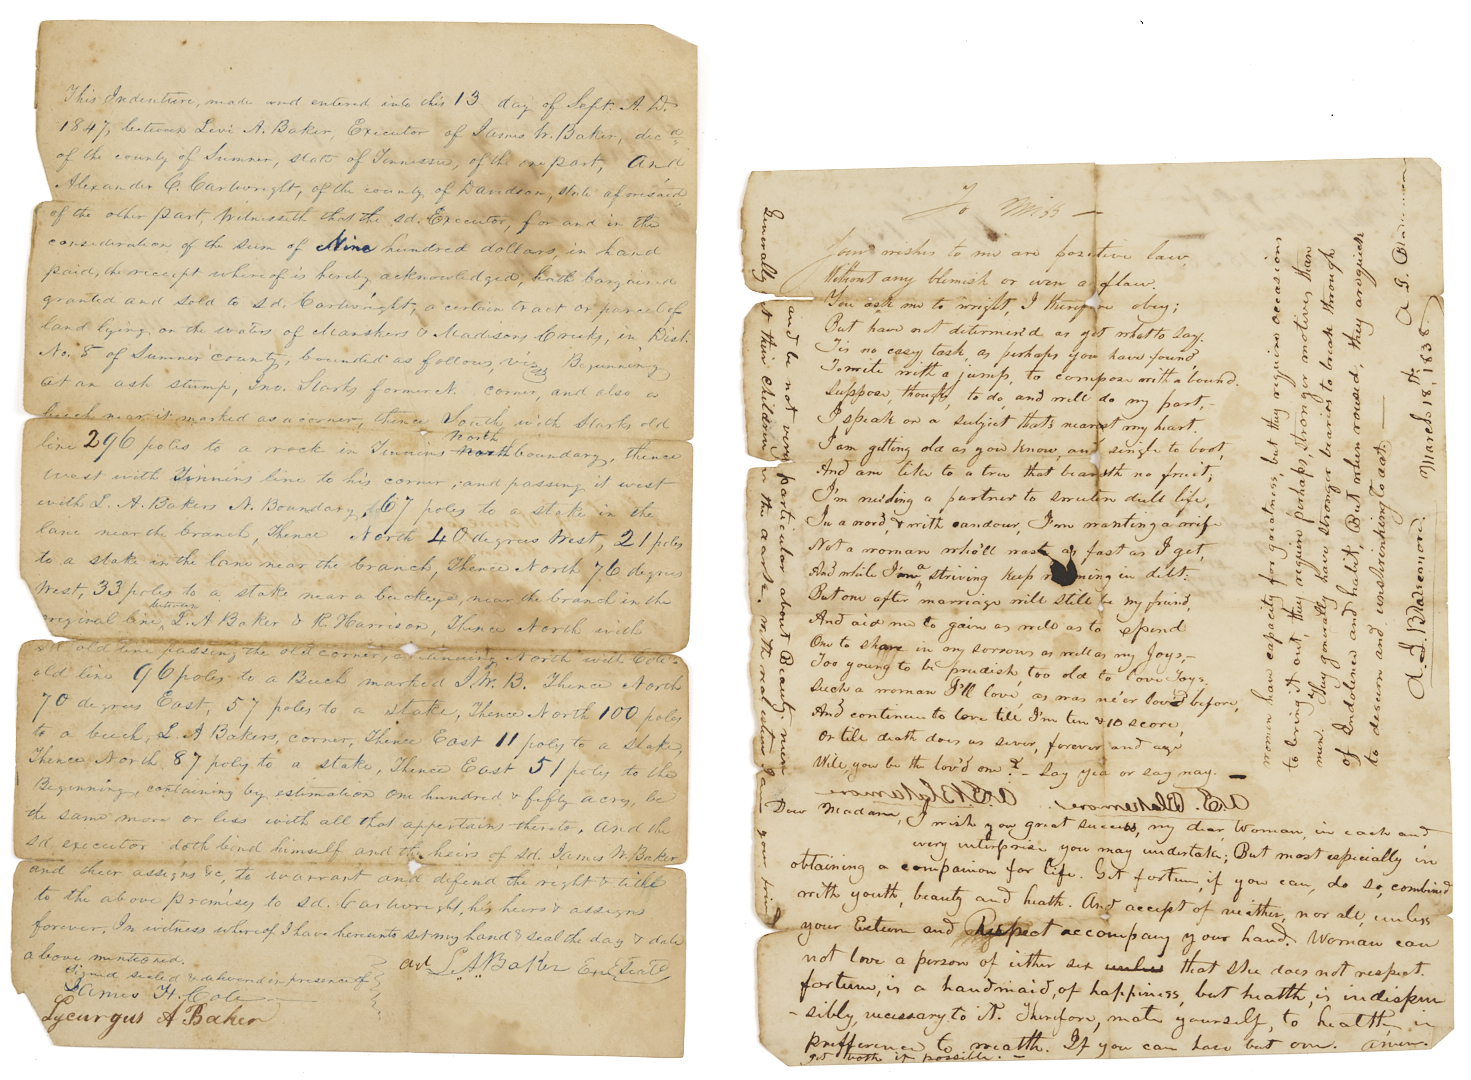 This Indenture, made and entered into this 13 day of Sept. A. D.
1847, between Levi A. Baker, Executor of James W. Baker, decd
of the county of Sumner, state of Tennessee, of the one part, And
Alexander C. Cartwright, of the county of Davidson, state aforesaid
of the other part, Witnesseth that the sd. Executor, for and in the
consideration of the sum of Nine hundred dollars, in hand
paid, the receipt whereof is hereby acknowledged, hath bargained
granted and sold to sd. Cartwright, a certain tract or parcel of
land lying, on the waters of Manskers & Madisons Creeks, in Dist.
No. 8 of Sumner county, bounded as follows, viz Beginning
at an ash stump, Jno. Starks former N. corner, and also a
beech near it marked as a corner, thence South, with Starks old
line 296 poles to a rock in Tinnins North boundary, thence
west with Tinnins line to his corner, and passing it west
with L. A. Bakers N. Boundary, 167 poles to a stake in the
lane near the branch, Thence North 40 degrees West, 21 poles
to a stake in the lane near the branch, Thence North 76 degrees
West, 33 poles to a stake near a buckeye, near the branch in the
original line, between L. A Baker & R. Harrison, Thence North with
sd. old line passing the old corner, continuing North with Cole's
old line 96 poles to a Beech marked J. W. B. Thence North
70 degrees East, 57 poles to a stake, Thence North 100 poles
to a beech, L. A Bakers, corner, Thence East 11 poles to a stake,
Thence North 87 poles to a stake, Thence East 51 poles to the
Beginning, containing by estimation One hundred & fifty acres, be
the same more or less with all that appertains thereto, And the
sd. executor doth bind himself and the heirs of sd. James W. Baker
and their assigns &c, to warrant and defend the right & title
to the above promises to sd. Cartwright, his heirs & assigns
forever, In witness whereof I have hereunto set my hand & seal the day & date
above mentioned.
Signed sealed & delivered in presence of
L. A Baker Exr Seal
James H. Cole
Lycurgus A Baker
To Miss —
Your wishes to me are positive law,
Without any blemish or even a flaw.
You ask me to wright, I therefore obey;
But have not determin'd as yet what to say.
Tis no easy task, as perhaps you have found
To write with a jump, to compose with a bound.
Suppose, though, to do, and will do my part,-
I speak on a subject that's nearest my heart.
I am getting old as you know and single to boot,
And am like to a tree that beareth no fruit;
I'm needing a partner to sweeten dull life,
In a word, & with candour, I'm wanting a wife
Not a woman who'll waste as fast as I get,
And while I'm a striving keep running in debt:
But one after marriage will still be my friend,
And aid me to gain as well as to spend
One to share in my sorrows as well as my Joys,-
Too young to be prudish too old to love toys.
Such a woman I'll love, as was ne'er lov'd before,
And continue to love till I'm ten & 10 score,
Or till death does us sever, forever and aye
Will you be the lov'd one? - Say yea or say nay. —
Dear Madam, I wish you great success, my dear Woman, in each and
every enterprise you may undertake; But most especially in
obtaining a companion for life. Get fortune, if you can, do so, combined
with youth, beauty and heath. And accept of neither, nor all, unless
your Esteem and Respect accompany your hand. Woman can
not love a person of either sex unless that she does not respect.
fortune, is a handmaid, of happiness, but health, is indispen
- sibly, necessary to it. Therefore, mate yourself, to health, in
prefference to wealth. If you can have but one. amen.
get both if possible. —
Generally
women have capacity for greatness, but they require occasions
to bring it out, they require perhaps, stronger motives than
men. They generally have stronger bearies to break through
of Indolence and habit, But when roused, they are quick
to discern and unshrinking to act. —
A. G. Blakemore.
March 18th, 1838
and be not very particular about Beauty; men